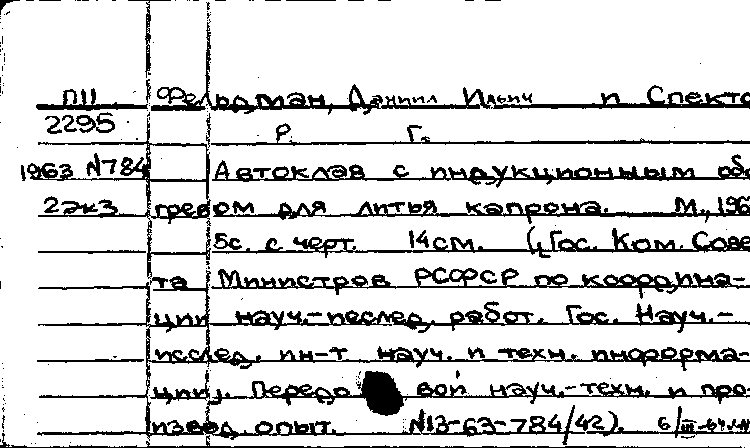 П11 Фельдман, Даниил Ильич и Спекто
2295 Р. Г.
1963 N784 Автоклав с индукционным обо
2экз гревом для литья капрона. М., 196
5с. с черт. 14см. (Гос. Ком. Сове
та Министров РСФСР по координа-
ции науч.-исслед. работ. Гос. Науч.-
исслед. ин-т науч. и техн. информа-
ции. Передовой науч.-техн. и про-
извод. опыт. N13-63-784/42).